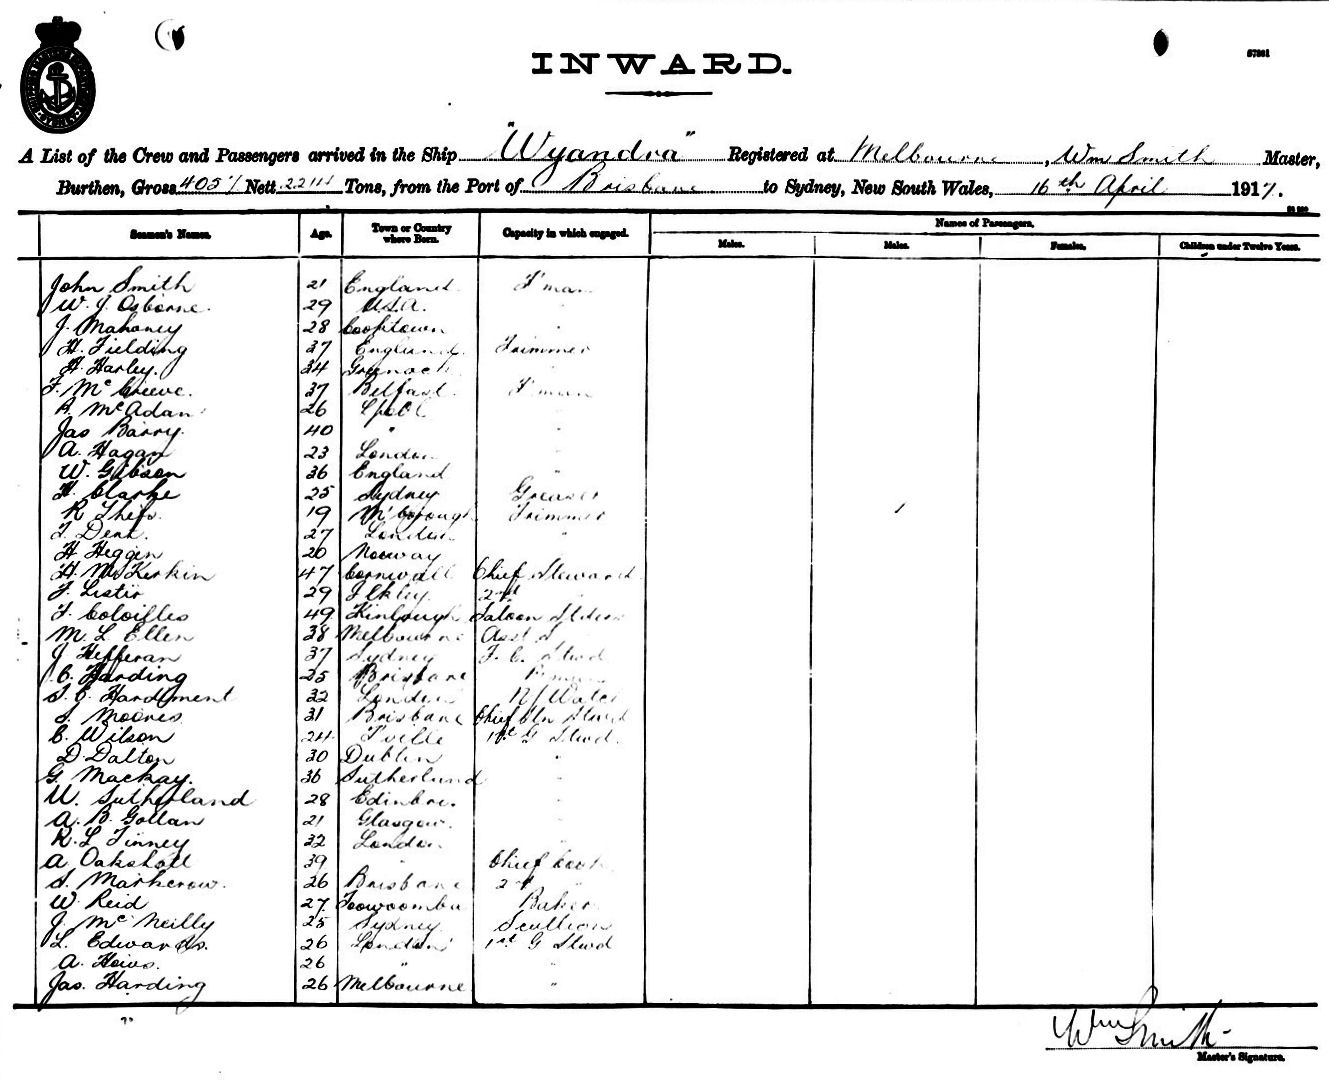 INWARD.
A List of the Crew and Passengers arrived in the Ship "Wyandra" Registered at Melbourne, Wm Smith Master,
Burthen, Gross 4051 Nett Tons, from the Port of Brisbane to Sydney, New South Wales, 16th April 1917.
Seamen's Names. Age. Town or Country where Born. Capacity in which engaged. Names of Passengers.
Males. Males. Females. Children under Twelve Years.
John Smith 21 England F'man
W. J. Osborne. 29 U.S.A. "
J. Mahoney 28 Cooktown "
H. Fielding 37 England. Trimmer
H. Harley. 34 Greenock "
F. Mc Creeve. 37 Belfast. F'man
R. McAdam 26 L'pool "
Jas Barry. 40 " "
A. Hagan 23 London "
W. Gibson 36 England "
H. Clarke 25 Sydney Greaser
R 19 M'borough Trimmer
27 London "
H Heggen 20 Norway
H. Mc Kerkin 47 Cornwall Chief Steward
F. Lister 29 Ilkley. 2nd "
F. 49 Saloon
M. L Ellen 38 Melbourne Asst S
J Hefferan 37 Sydney F. C. Stwd
C. Harding 25 Brisbane
S. E. Hardiment 32 London N/Watch
S. Moores 31 Brisbane Chief Stwd
C. Wilson 24 T'ville 1st G Stwd.
D. Dalton 30 Dublin "
G. Mackay. 36 Sutherland "
W. Sutherland 28 Edinbro. "
A. B. Gollan 21 Glasgow. "
R. L Finney 32 London "
A Oakshott 39 " Chief Cook
S. Markerow. 26 Brisbane 2nd "
W. Reid 27. Toowoomba Baker
J. Mc Neilly 25 Sydney. Scullion
L. Edwards. 26 London 1st G Stwd
A. 26 " "
Jas. Harding 26 Melbourne "
Wm Smith
Master's Signature.